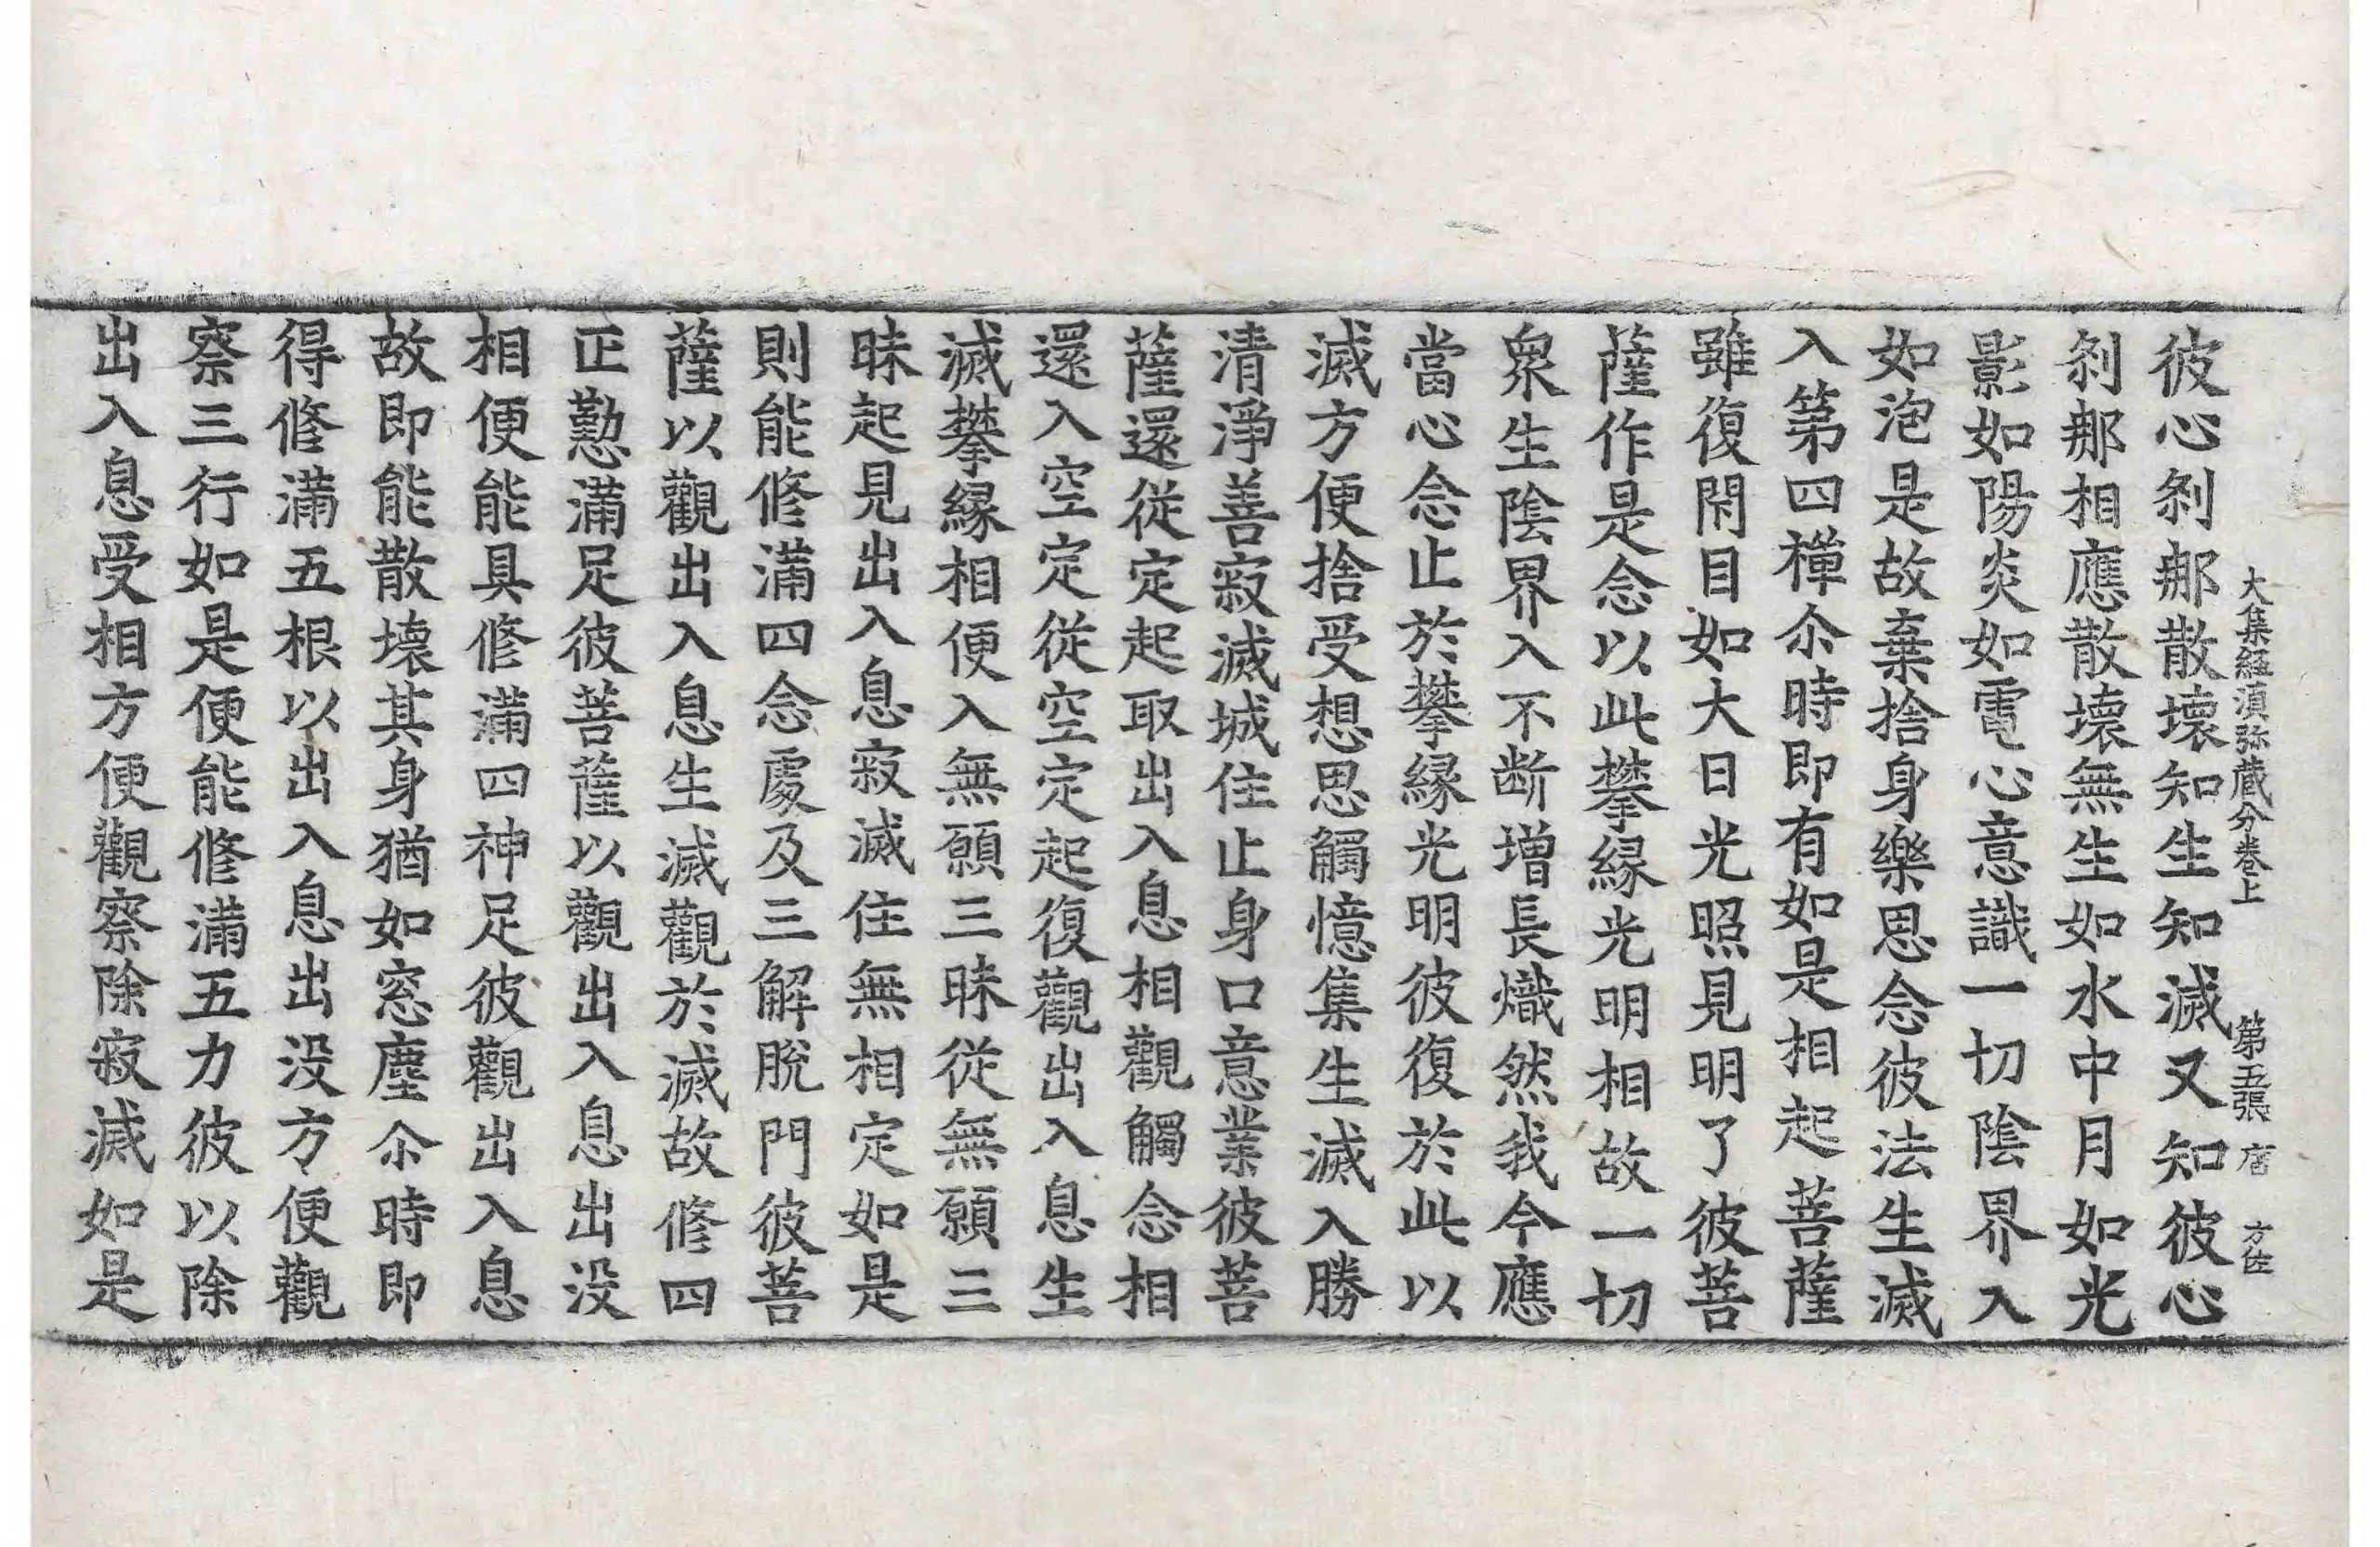 大集經湏弥蔵分卷上 第五張 㡯 方佐
彼心刹那散壞知生知滅又知彼心
刹那相應散壞無生如水中月如光
影如陽炎如電心意識一切陰界入
如泡是故棄捨身樂恩念彼法生滅
入第四禪尒時即有如是相起菩薩
雖復閇目如大日光照見明了彼菩
薩作是念以此攀縁光明相故一切
衆生陰界入不断增長熾然我今應
當心念止於攀縁光明彼復於此以
滅方便捨受想思觸憶集生滅入勝
清淨善寂滅城住止身口意業彼菩
薩還從定起取出入息相觀觸念相
還入空定從空定起復觀出入息生
滅攀縁相便入無願三昧從無願三
昧起見出入息寂滅住無相定如是
則能修滿四念處及三解脫門彼菩
薩以觀出入息生滅觀於滅故修四
正勤滿足彼菩薩以觀出入息出没
相便能具修滿四神足彼觀出入息
故即能散壞其身猶如窓塵尒時即
得修滿五根以出入息出没方便觀
察三行如是便能修滿五力彼以除
出入息受相方便觀察除寂滅如是